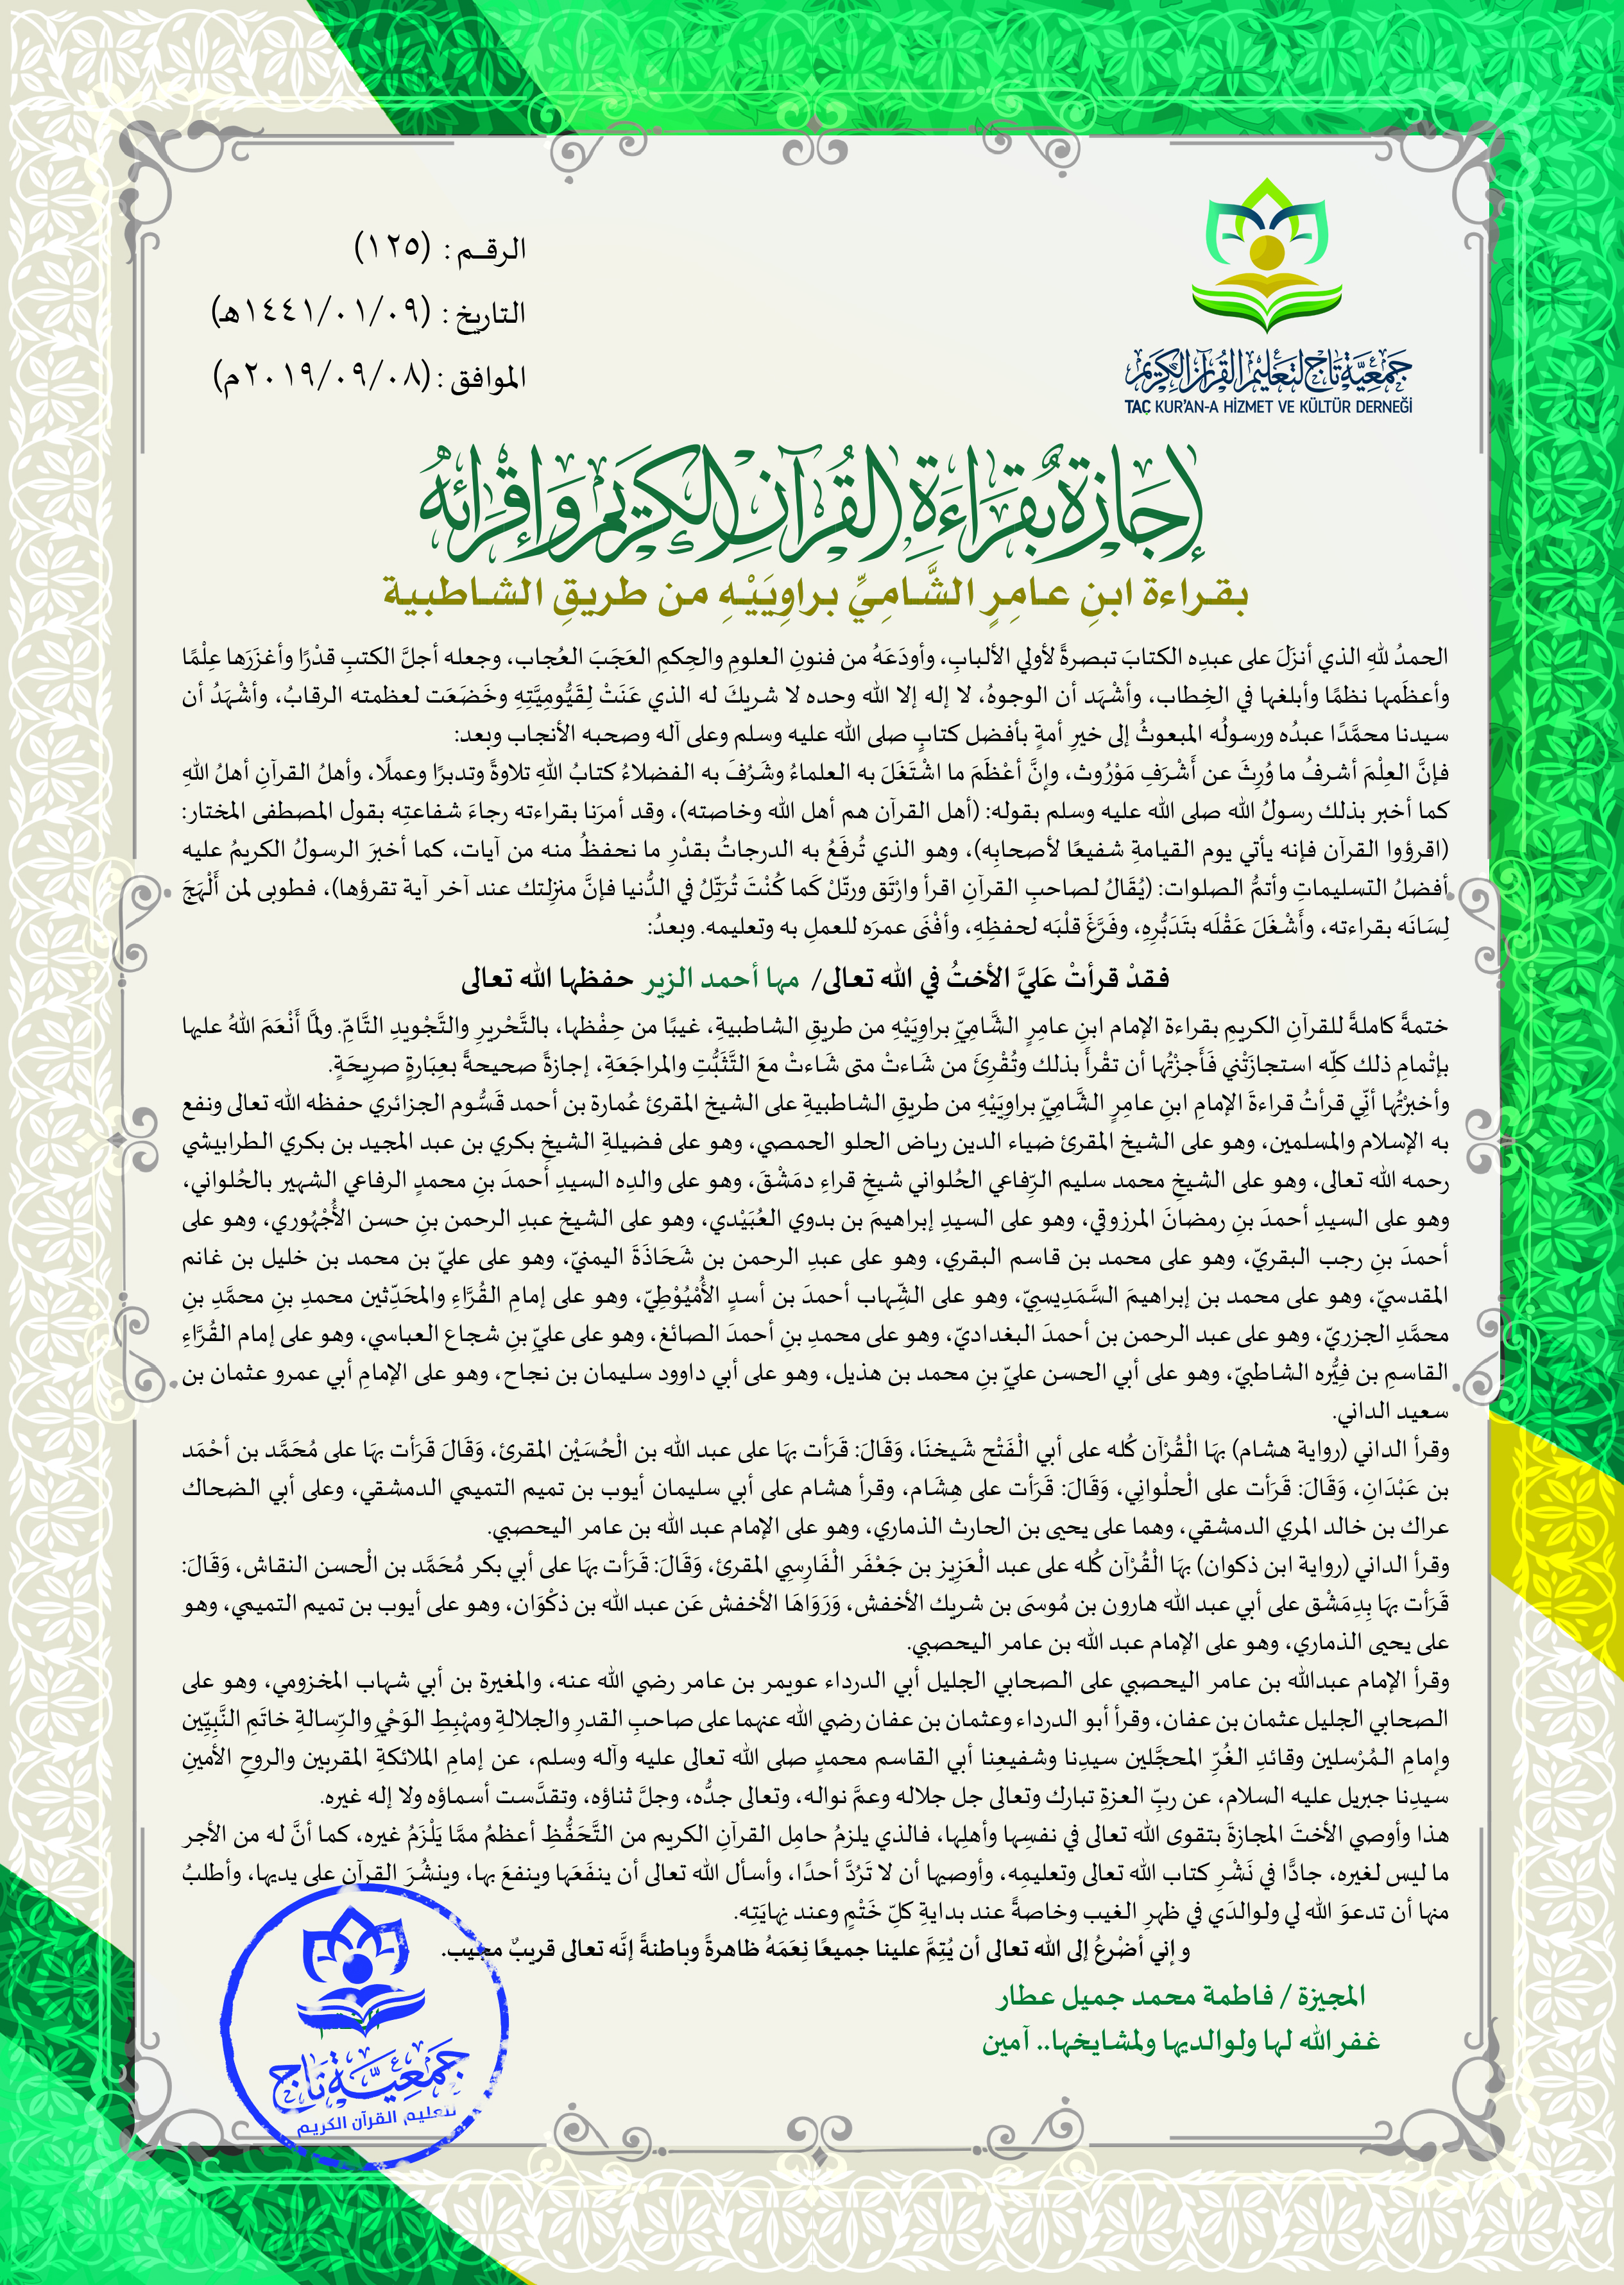 الرقـم : (١٢٥)
التاريخ : (١٤٤١/٠١/٠٩هـ)
الموافق : (٢٠١٩/٠٩/٠٨م)
جمعية تاج لتعليم القرآن الكريم
TAÇ KUR'AN-A HİZMET VE KÜLTÜR DERNEĞİ
إجازة بقراءة القرآن الكريم وإقرائه
بقـراءة ابنِ عـامِرٍ الشَّـامِيِّ براوِيَيْـهِ من طريقِ الشـاطبية
الحمدُ للهِ الذي أنزَلَ على عبدِه الكتابَ تبصرةً لأولي الألبابِ، وأودَعَهُ من فنونِ العلومِ والحِكمِ العَجَبَ العُجاب، وجعله أجلَّ الكتبِ قدْرًا وأغزَرَها عِلْمًا
وأعظَمها نظمًا وأبلغها في الخِطاب، وأشْهَد أن الوجوهُ، لا إله إلا الله وحده لا شريكَ له الذي عَنَتْ لِقَيُّوميَّتِهِ وخَضَعَت لعظمته الرقابُ، وأشْهَدُ أن
سيدنا محمَّدًا عبدُه ورسولُه المبعوثُ إلى خيرِ أمةٍ بأفضل كتابٍ صلى الله عليه وسلم وعلى آله وصحبه الأنجاب وبعد:
فإنَّ العِلْمَ أشرفُ ما وُرِثَ عن أَشْرَفِ مَوْرُوث، وإنَّ أعْظَمَ ما اشْتَغَلَ به العلماءُ وشَرُفَ به الفضلاءُ كتابُ اللهِ تلاوةً وتدبرًا وعملًا، وأهلُ القرآنِ أهلُ اللهِ
كما أخبر بذلك رسولُ الله صلى الله عليه وسلم بقوله: (أهل القرآن هم أهل الله وخاصته)، وقد أمرَنا بقراءته رجاءَ شفاعتِه بقول المصطفى المختار:
(اقرؤوا القرآن فإنه يأتي يوم القيامةِ شفيعًا لأصحابِه)، وهو الذي تُرفَعُ به الدرجاتُ بقدْرِ ما نحفظُ منه من آيات، كما أخبرَ الرسولُ الكريمُ عليه
أفضلُ التسليماتِ وأتمُّ الصلوات: (يُقَالُ لصاحبِ القرآنِ اقرأ وارْتَق ورتّلْ كَما كُنْتَ تُرَتِّلُ في الدُّنيا فإنَّ منزِلتك عند آخر آية تقرؤها)، فطوبى لمن أَلْهَجَ
لِسَانَه بقراءته، وأَشْغَلَ عَقْلَه بتَدَبُّرِهِ، وفَرَّغَ قلْبَه لحفظِهِ، وأفْنَى عمرَه للعملِ به وتعليمه. وبعدُ:
فـقدْ قرأتْ عَليَّ الأختُ في الله تعالى/ مهـا أحمد الزير حفظها الله تعالى
ختمةً كاملةً للقرآنِ الكريمِ بقراءة الإمام ابنِ عامِرٍ الشَّامِيِّ براوِيَيْهِ من طريقِ الشاطبيةِ، غيبًا من حِفْظها، بالتَّحْريرِ والتَّجْويدِ التَّامِّ. ولمَّا أَنْعَمَ اللهُ عليها
بإتْمامِ ذلك كلِّه استجازَتْني فَأَجزْتُها أن تقْرأَ بذلك وتُقْرِئَ من شَاءتْ متى شَاءتْ معَ التَّثَبُّتِ والمراجَعَةِ، إجازةً صحيحةً بعِبَارةٍ صريحَةٍ.
وأخبرْتُها أنّي قرأتُ قراءةَ الإمامِ ابنِ عامِرٍ الشَّامِيِّ براوِيَيْهِ من طريقِ الشاطبيةِ على الشيخ المقرئ عُمارة بن أحمد قَسُّوم الجزائري حفظه الله تعالى ونفع
به الإسلام والمسلمين، وهو على الشيخ المقرئ ضياء الدين رياض الحلو الحمصي، وهو على فضيلةِ الشيخِ بكري بن عبد المجيد بن بكري الطرابيشي
رحمه الله تعالى، وهو على الشيخِ محمد سليم الرّفاعي الحُلواني شيخِ قراءِ دمَشْقَ، وهو على والدِه السيدِ أحمدَ بنِ محمدٍ الرفاعي الشهير بالحُلواني،
وهو على السيدِ أحمدَ بنِ رمضانَ المرزوقي، وهو على السيدِ إبراهيمَ بن بدوي العُبَيْدي، وهو على الشيخ عبدِ الرحمن بنِ حسن الأُجْهُوري، وهو على
أحمدَ بنِ رجب البقريّ، وهو على محمد بن قاسم البقري، وهو على عبدِ الرحمن بن شَحَاذَةَ اليمنيّ، وهو على عليّ بن محمد بن خليل بن غانم
المقدسيّ، وهو على محمد بن إبراهيمَ السَّمَدِيسِيّ، وهو على الشِّهاب أحمدَ بن أسدٍ الأُمْيُوْطِيّ، وهو على إمامِ القُرَّاءِ والمحَدِّثين محمدِ بنِ محمَّدِ بنِ
محمَّدِ الجزريّ، وهو على عبد الرحمن بن أحمدَ البغداديّ، وهو على محمدِ بنِ أحمدَ الصائغ، وهو على عليِّ بنِ شجاع العباسي، وهو على إمام القُرَّاءِ
القاسمِ بن فِيُّره الشاطبيّ، وهو على أبي الحسن عليِّ بنِ محمد بن هذيل، وهو على أبي داوود سليمان بن نجاح، وهو على الإمامِ أبي عمرو عثمان بن
سعيد الداني.
وقرأ الداني (رواية هشام) بهَا الْقُرْآن كُله على أبي الْفَتْح شَيخنَا، وَقَالَ: قَرَأت بهَا على عبد الله بن الْحُسَيْن المقرئ، وَقَالَ قَرَأت بهَا على مُحَمَّد بن أحْمَد
بن عَبْدَانِ، وَقَالَ: قَرَأت على الْحلْوانِي، وَقَالَ: قَرَأت على هِشَام، وقرأ هشام على أبي سليمان أيوب بن تميم التميمي الدمشقي، وعلى أبي الضحاك
عراك بن خالد المري الدمشقي، وهما على يحيى بن الحارث الذماري، وهو على الإمام عبد الله بن عامر اليحصبي.
وقرأ الداني (رواية ابن ذكوان) بهَا الْقُرْآن كُله على عبد الْعَزِيز بن جَعْفَر الْفَارِسِي المقرئ، وَقَالَ: قَرَأت بهَا على أبي بكر مُحَمَّد بن الْحسن النقاش، وَقَالَ:
قَرَأت بهَا بِدِمَشْق على أبي عبد الله هارون بن مُوسَى بن شريك الأخفش، وَرَوَاهَا الأخفش عَن عبد الله بن ذكْوَان، وهو على أيوب بن تميم التميمي، وهو
على يحيى الذماري، وهو على الإمام عبد الله بن عامر اليحصبي.
وقرأ الإمام عبدالله بن عامر اليحصبي على الصحابي الجليل أبي الدرداء عويمر بن عامر رضي الله عنه، والمغيرة بن أبي شهاب المخزومي، وهو على
الصحابي الجليل عثمان بن عفان، وقرأ أبو الدرداء وعثمان بن عفان رضي الله عنهما على صاحبِ القدرِ والجلالةِ ومهْبِطِ الوَحْيِ والرِّسالةِ خاتَمِ النَّبِيِّين
وإمامِ المُرْسلين وقائدِ الغُرِّ المحجَّلين سيدِنا وشفيعِنا أبي القاسم محمدٍ صلى الله تعالى عليه وآله وسلم، عن إمامِ الملائكةِ المقربين والروحِ الأمينِ
سيدِنا جبريل عليه السلام، عن ربِّ العزةِ تبارك وتعالى جل جلاله وعمَّ نواله، وتعالى جدُّه، وجلَّ ثناؤه، وتقدَّست أسماؤه ولا إله غيره.
هذا وأوصي الأختَ المجازةَ بتقوى الله تعالى في نفسِها وأهلِها، فالذي يلزمُ حامِل القرآنِ الكريم من التَّحَفُّظِ أعظمُ ممَّا يَلْزَمُ غيره، كما أنَّ له من الأجر
ما ليس لغيره، جادًّا في نَشْرِ كتاب الله تعالى وتعليمِه، وأوصيها أن لا تَرُدَّ أحدًا، وأسأل الله تعالى أن ينفَعَها وينفعَ بها، وينشُرَ القرآن على يديها، وأطلبُ
منها أن تدعوَ الله لي ولوالدَي في ظهرِ الغيب وخاصةً عند بدايةِ كلّ خَتْمٍ وعند نِهايَتِه.
و إني أضْرعُ إلى الله تعالى أن يُتِمَّ علينا جميعًا نِعَمَهُ ظاهرةً وباطنةً إنَّه تعالى قريبٌ مجيب.
المجيزة / فاطمة محمد جميل عطار
غفر الله لها ولوالديها ولمشايخها.. آمين
جمعية تاج
لتعليم القرآن الكريم